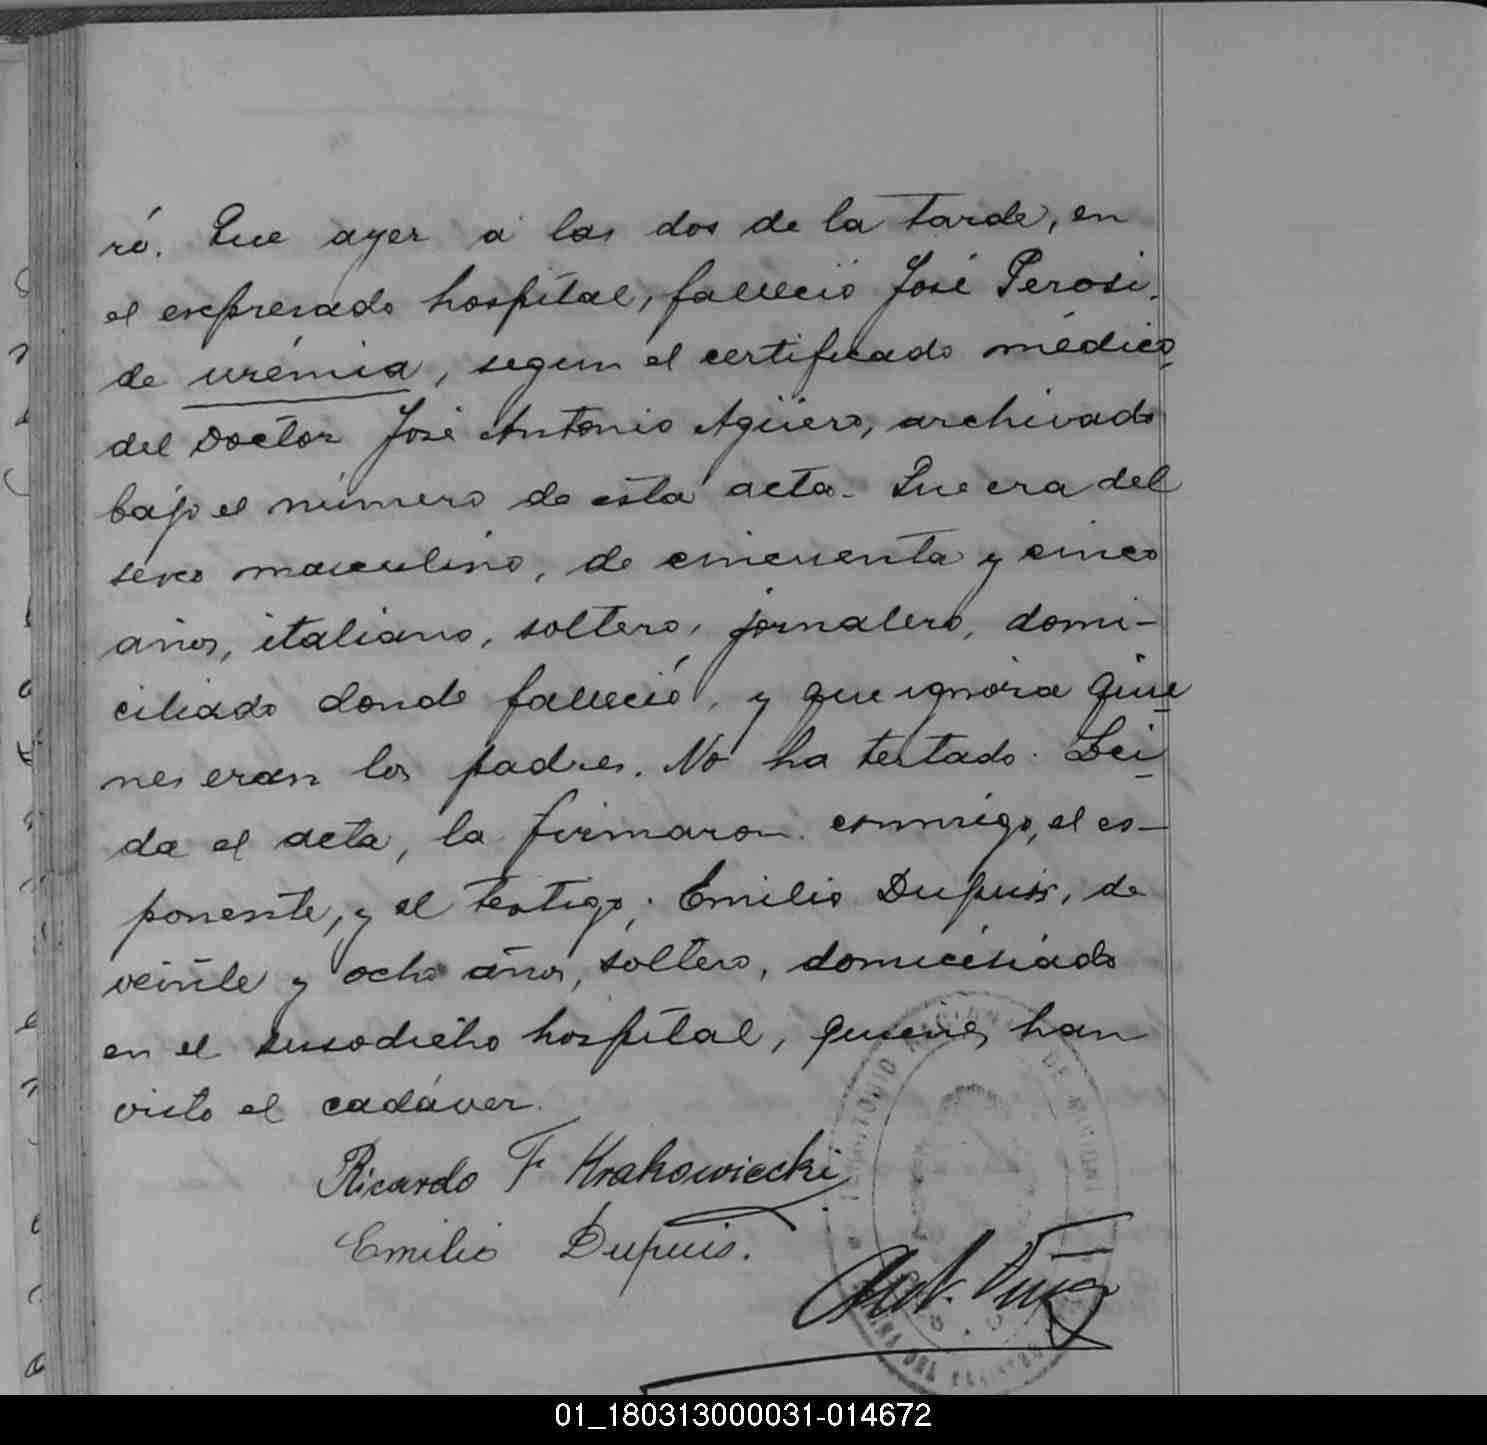 ró. Que ayer a las dos de la tarde, en
el expresado hospital, falleció José Perosi,
de urémia, segun el certificado médico
del Doctor José Antonio Agüero, archivado
bajo el número de esta acta. Que era del
sexo masculino, de cincuenta y cinco
años, italiano, soltero, jornalero, domi-
ciliado donde falleció, y que ignora quie
nes eran los padres. No ha testado. Lei
da el acta, la firmaron conmigo, el es-
ponente, y el testigo; Emilio Dupuis, de
veinte y ocho años, soltero, domiciliado
en el susodicho hospital, quienes han
visto el cadáver.
Ricardo F Krakowiecki
Emilio Dupuis.
01_180313000031-014672